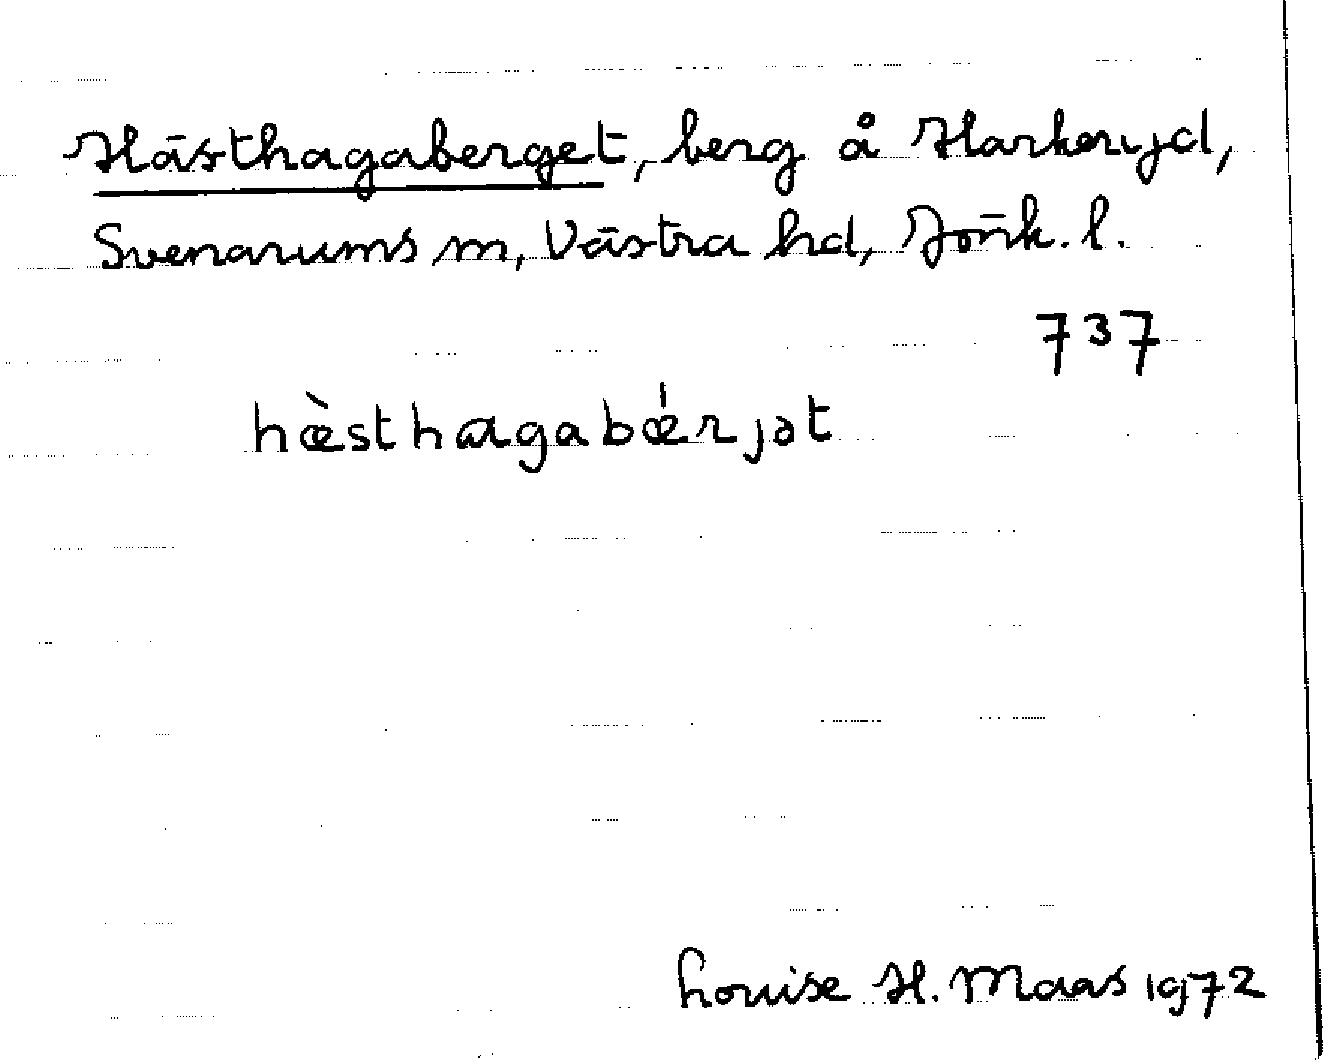 Hästhagaberget, berg å Harkeryd,
Svenarums sn, Västra hd, Jönk. l.
737
hæ̀sthagabǽrjət
Louise H. Maas 1972